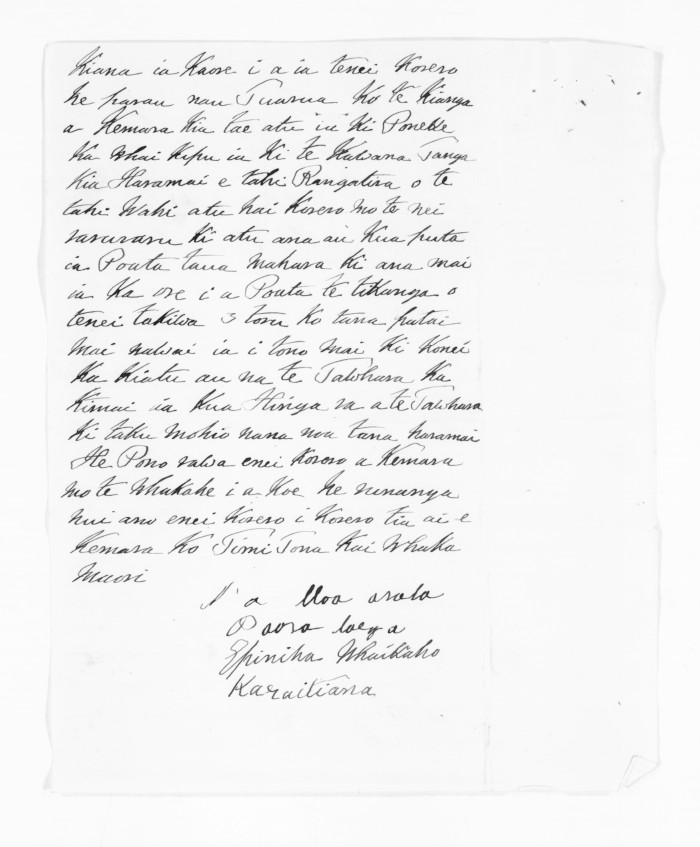 Kiana ia Kaore i a ia tenei Korero
he parau nau Tuarua Ko te Kianga
a Kemara Kia tae atu ia Ki Poneke
Ka Whai Kupu ia Ki te Kawana Tanga
Kia Haramai e tahi Rangatira o te
tahi Wahi atu hai Korero mo te nei
raruraru Ki atu ana au Kua puta
ia Pouta taua mahara Ki ana mai
ia Ka ore i a Pouta te tikanga o
tenei takiwa 3 toru Ko tana patai
mai nawai ia i tono mai Ki Konei
Ka Kiatu au na te Tawhara Ka
Kimai ia Kua Hinga ra a te Tawhara
Ki taku mohio nana noa tana haramai
He Pono rawa enei Korero a Kemara
mo te Whakahe i a Koe he nunanga
nui ano enei Korero i Korero tia ai e
Kemara Ko Timi Tona Kai Whaka
Maori
N a
Paora
Epiniha
Karaitiana